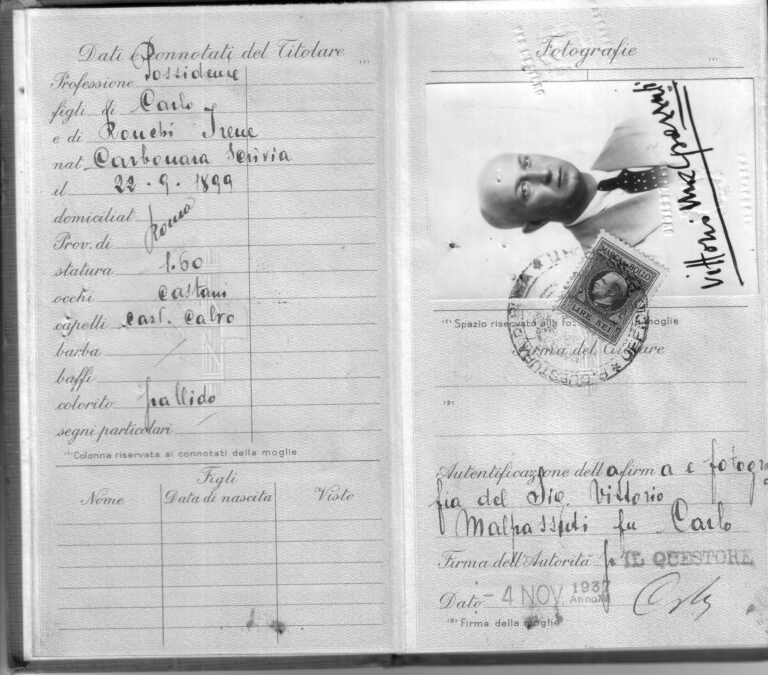 Dati e Connotati del Titolare
Professione Possidente
figli di Carlo
e di Ronchi Irene
nat Carbonara Scrivia
il 22 . 9 . 1899
domiciliat Roma
Prov. di
statura 1.60
occhi castani
capelli cast. calvo
barba
baffi
colorito pallido
segni particolari
(1) Colonna riservata ai connotati della moglie
Figli
Nome Data di nascita Visto
Fotografie
Vittorio Malpassuti
MARCA DA BOLLO
LIRE SEI
(1) Spazio riservato alla moglie
Firma del Titolare
(2)
Autentificazione della firma e fotogra
fia del Sig. Vittorio
Malpassuti fu Carlo
Firma dell'Autorità p. IL QUESTORE
Dato - 4 NOV. 1937
Anno
(2) Firma della moglie